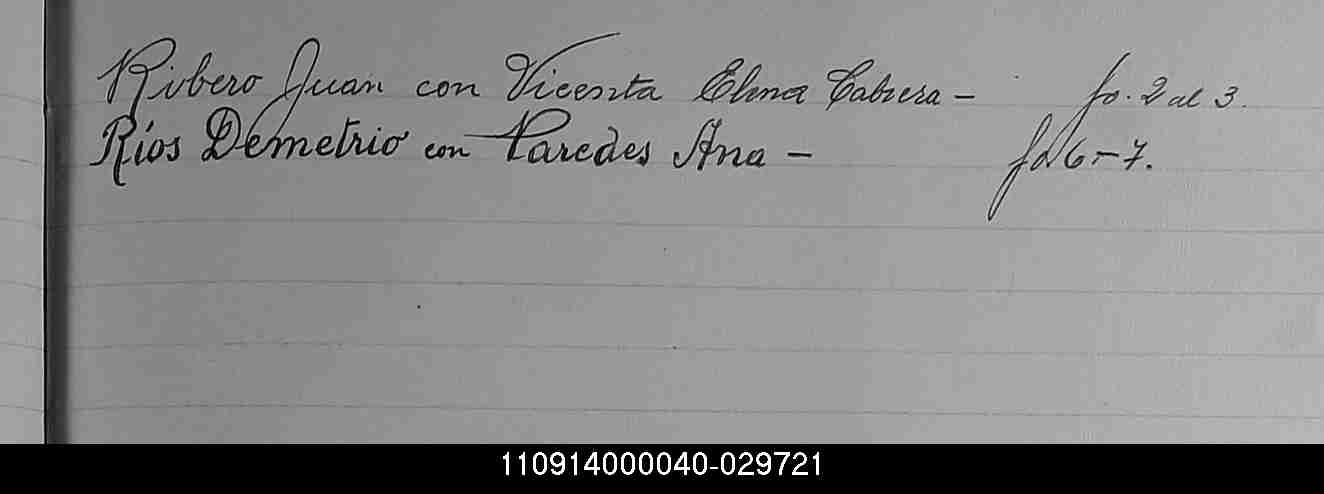 Ribero Juan con Vicenta Elena Cabrera - fo. 2 al 3.
Ríos Demetrio con Paredes Ana - fo 6-7.
110914000040-029721